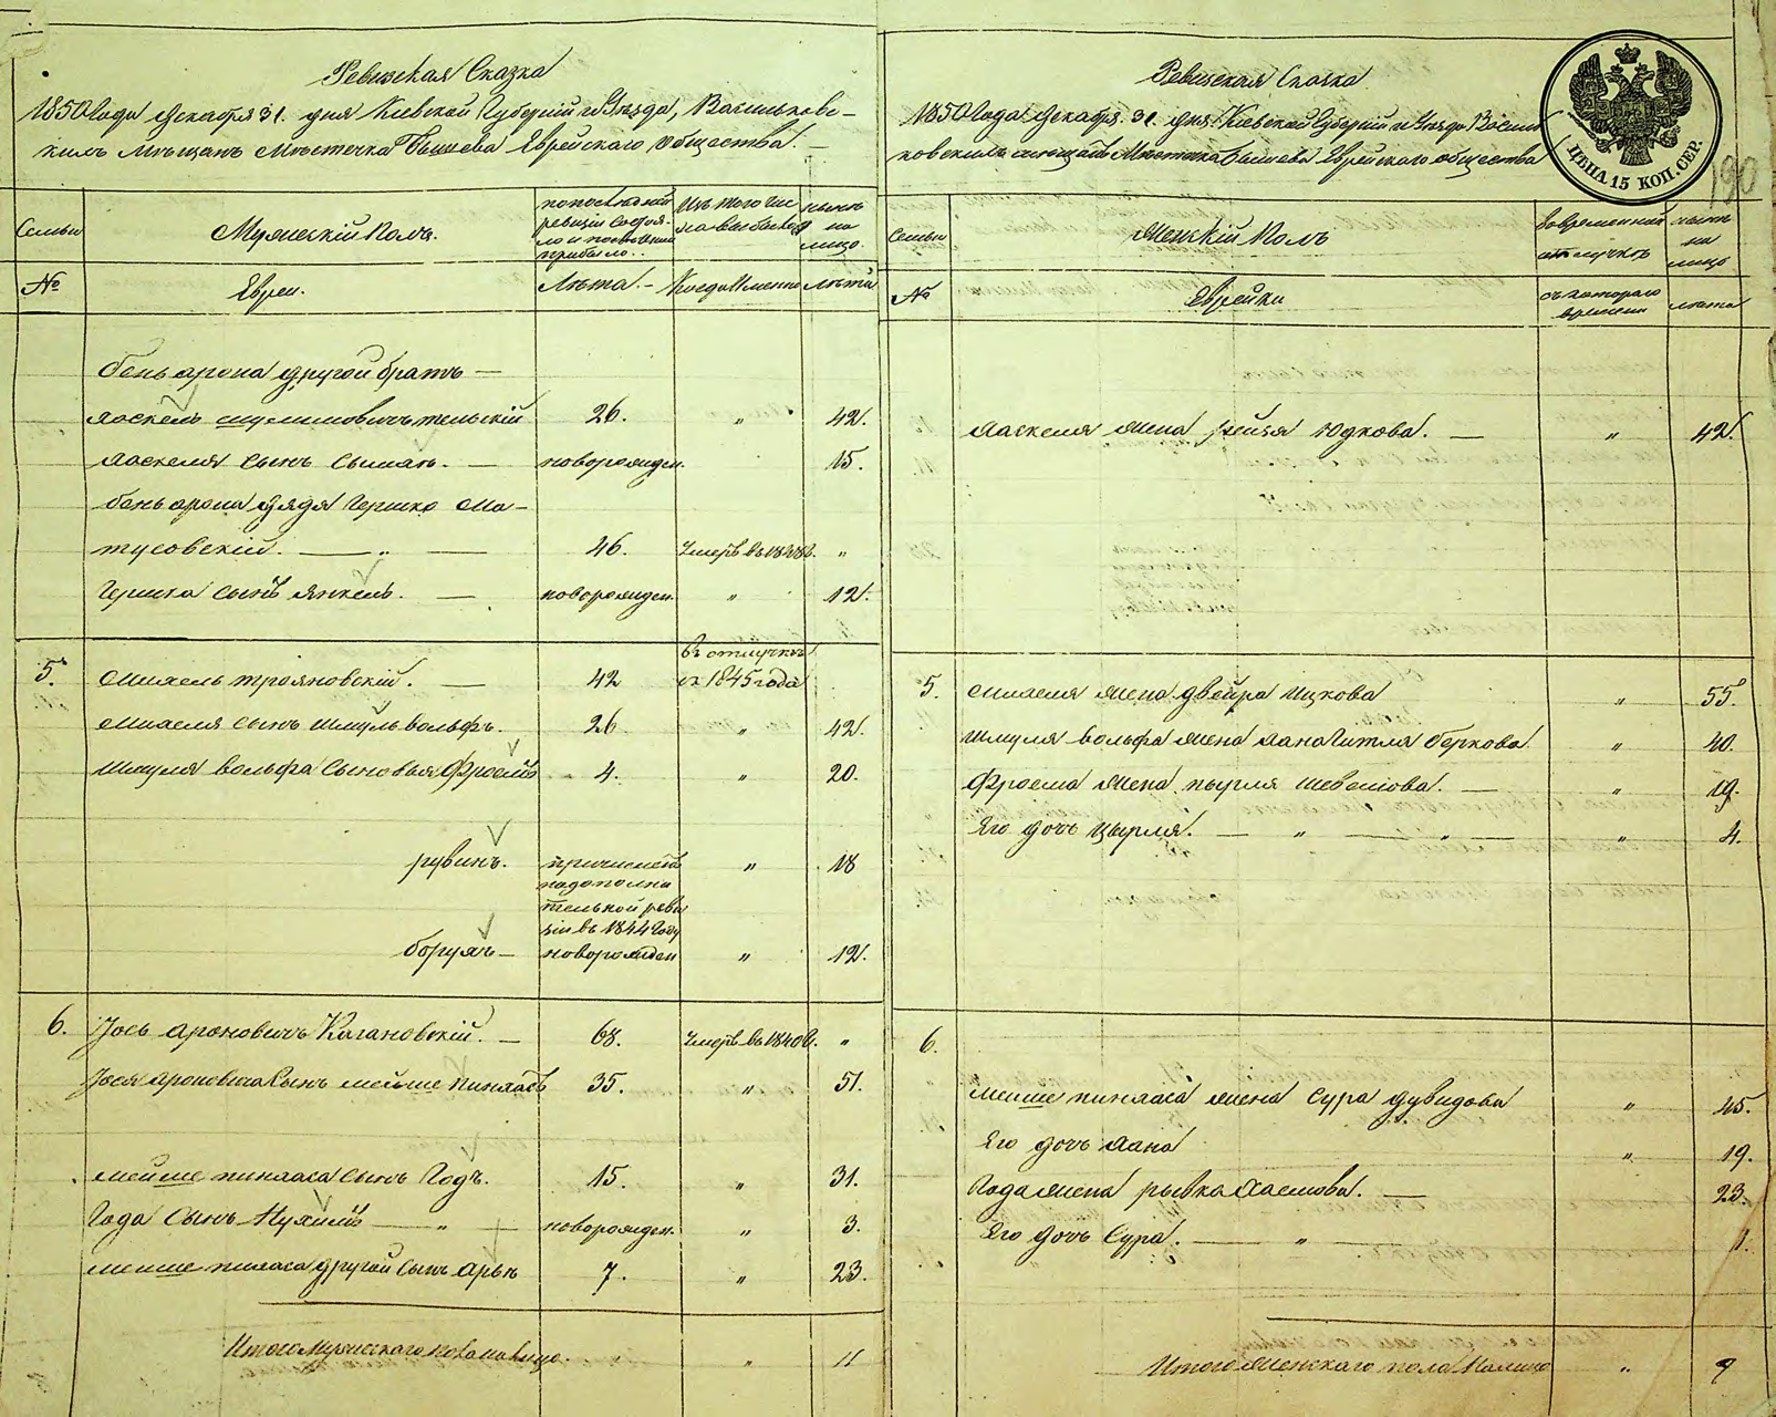 Ревизская Сказка
1850 Года Декабря 31. дня Киевской Губерніи и Уезда, Васильковс-
кихъ мещанъ Местечка Бышева Еврейскаго общества.
Семьи
Мужескій Полъ.
по последней
ревизіи состоя-
ло и после оной
прибыло.
Изъ того чис
ла выбыло
ныне
на
лицо.
№
Евреи.
Лета.
Когда Именно
лета
Бень арона другой братъ —
Хаскель шулимовичъ тельскій
26.
"
42.
Хаскеля сынъ сымхъ. —
новорожден.
15.
бень арона дядя Гершко Ма-
тусовскій. — " —
46.
Умеръ въ 1848г.
"
Гершка сынъ Янкель. —
новорожден.
"
12.
5.
Михель трояновскій. —
42
въ отлучке
съ 1845 года
Михеля сынъ Шмуль вольфъ.
26
"
42.
Шмуля вольфа сыновья Фроимъ
4.
"
20.
рувинъ.
причисленъ
по дополни
тельной реви
зіи въ 1844 году
"
18
борухъ —
новорожден
"
12.
6.
Іось Ароновичъ Кагановскій. —
68.
Умеръ въ 1840г.
"
Іося ароновича сынъ мейше пинхасъ
35.
"
51.
мейше пинхаса сынъ Годъ.
15.
"
31.
Года сынъ Нухимъ — " —
новорожден.
"
3.
мейше пинхаса другой сынъ Арья
7.
"
23.
Итого Мужескаго пола на лицо.
"
"
11
Ревизская Сказка
1850 Года Декабря. 31. дня. Киевской Губерніи и Уезда Василь
ковскихъ мещанъ Местечка Бышева Еврейскаго общества
ЦЕНА 15 КОП. СЕР.
190
Семьи
Женскій Полъ
Во временной
отлучке
ныне
на
лицо
№
Еврейки
съ котораго
времени
лета
Хаскеля жена рейзя Юдкова. —
"
42.
5.
Михеля жена двейра Ицкова
"
55.
Шмуля вольфа жена хана Гитля беркова
"
40.
Фроема жена пырля шевелева. —
"
19.
Его дочь Цырля. — " — " —
"
4.
6.
Мейше пинхаса жена Сура дувидова
"
45.
Его дочь хана
"
19.
Года жена рывка Хаемова. —
23.
Его дочь Сура. — " —
1.
Итого женскаго пола на лицо
"
9